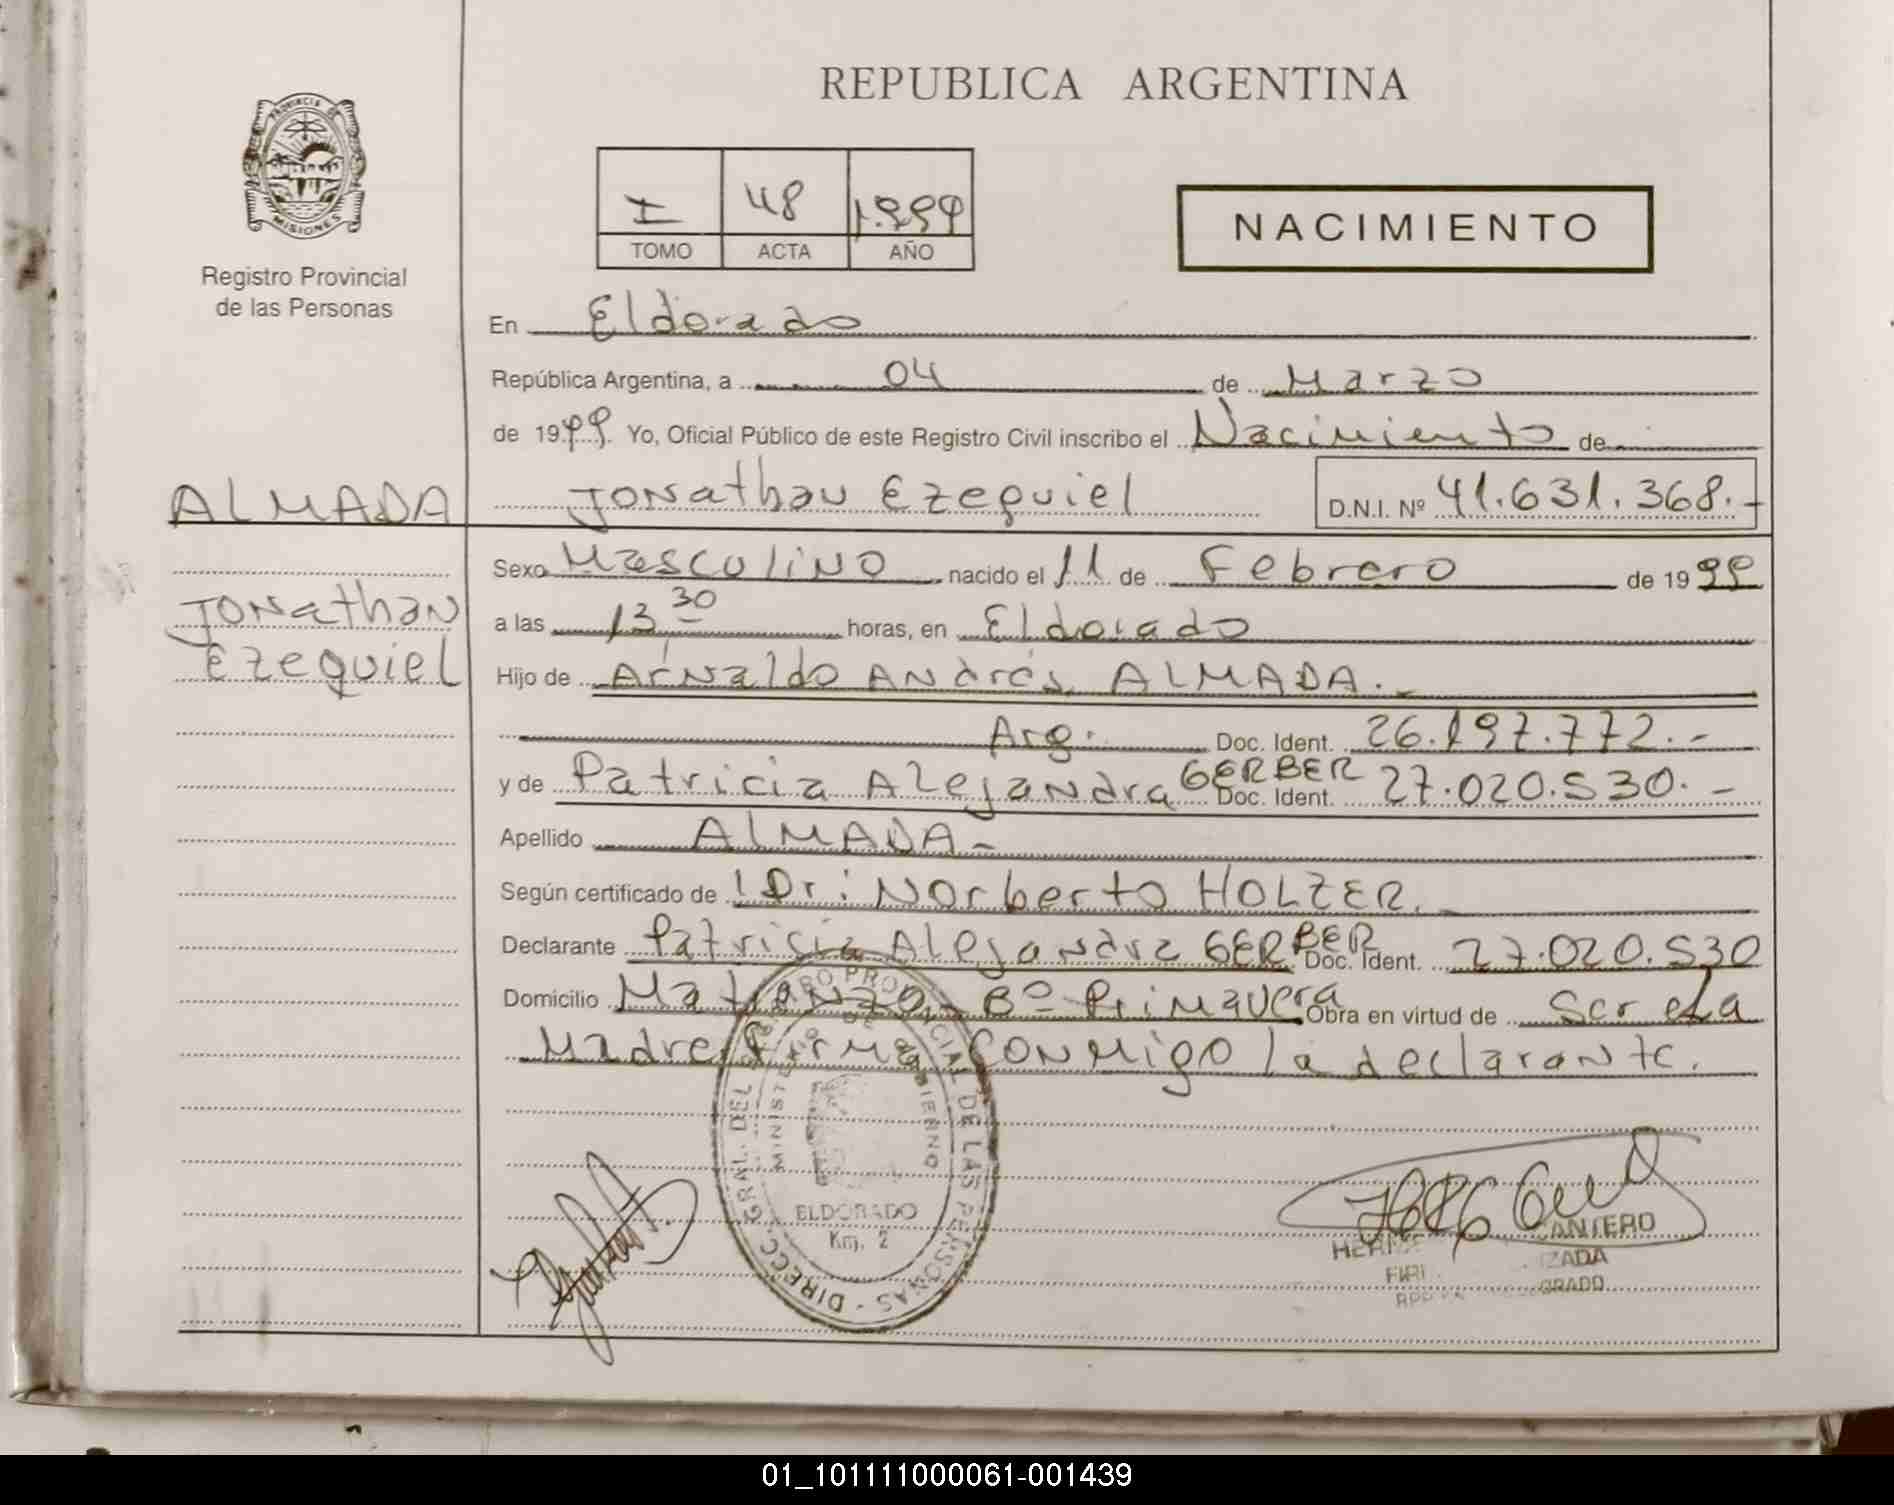 PROVINCIA DE
MISIONES
Registro Provincial
de las Personas
REPUBLICA ARGENTINA
I 48 1.999
TOMO ACTA AÑO
NACIMIENTO
En Eldorado
República Argentina, a 04 de Marzo
de 1999. Yo, Oficial Público de este Registro Civil inscribo el Nacimiento de
ALMADA Jonathan Ezequiel D.N.I. Nº 41.631.368.-
Sexo Masculino nacido el 11 de Febrero de 1999
Jonathan
a las 13 30 horas, en Eldorado
Ezequiel
Hijo de Arnaldo Andrés ALMADA.-
Arg. Doc. Ident. 26.197.772.-
y de Patricia Alejandra GERBER Doc. Ident. 27.020.530.-
Apellido ALMADA-
Según certificado de Dr: Norberto HOLZER.-
Declarante Patricia Alejandra GERBER Doc. Ident. 27.020.530
Domicilio Matienzo - Bº Primavera Obra en virtud de Ser la
Madre, firma conmigo la declarante.
DIRECC. GRAL. DEL REGISTRO PROVINCIAL DE LAS PERSONAS -
MINISTERIO DE GOBIERNO
ELDORADO
Km. 2
CANTERO
01_101111000061-001439